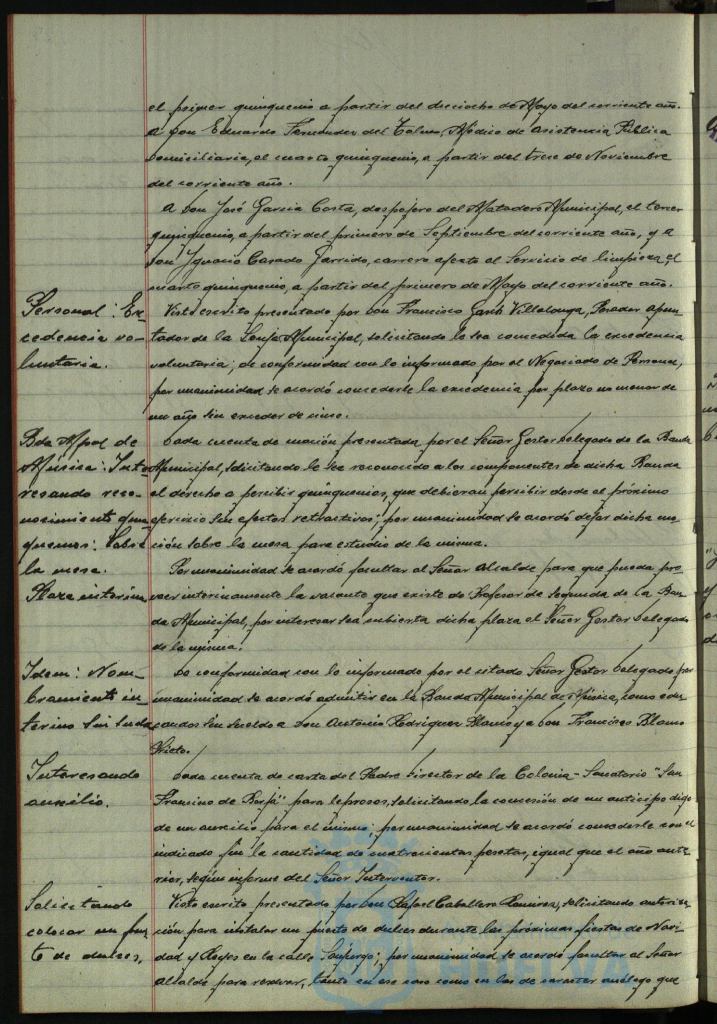 el primer quinquenio a partir del dieciocho de Mayo del corriente año.
A Don Eduardo Fernandez del Toluo, Médico de Asistencia Pública
Domiciliaria, el cuarto quinquenio, a partir del trece de Noviembre
del corriente año.
A Don José Garcia Costa, despojero del Matadero Municipal, el tercer
quinquenio, a partir del primero de Septiembre del corriente año, y a
Don Ignacio Casado Garrido, carrero afecto al Servicio de limpieza, el
cuarto quinquenio, a partir del primero de Mayo del corriente año.
Personal: Ex-
cedencia vo-
luntaria.
Visto escrito presentado por Don Francisco Villalonga, Pesador apun-
tador de la Lonja Municipal, solicitando le sea concedida la excedencia
voluntaria; de conformidad con lo informado por el Negociado de Personal,
por unanimidad se acordó concederle la excedencia por plazo no menor de
un año sin exceder de cinco.
Bda Mpal de
Música: Inte-
resando reco-
nocimiento quin-
quenios: Sobre
la mesa.
Dada cuenta de moción presentada por el Señor Gestor Delegado de la Banda
Municipal, solicitando le sea reconocido a los componentes de dicha Banda
el derecho a percibir quinquenios, que debieran percibir desde el próximo
ejercicio sin efectos retroactivos; por unanimidad se acordó dejar dicha mo-
ción sobre la mesa para estudio de la misma.
Plaza interina
Por unanimidad se acordó facultar al Señor Alcalde para que pueda pro-
veer interinamente la vacante que existe de Profesor de segunda de la Ban-
da Municipal, por interesar sea cubierta dicha plaza el Señor Gestor Delegado
de la misma.
Idem: Nom-
bramiento in-
terino sin sueldo
De conformidad con lo informado por el citado Señor Gestor Delegado, por
unanimidad se acordó admitir en la Banda Municipal de Música, como edu-
candos sin sueldo a Don Antonio Rodriguez Blanco y a Don Francisco Blanco
Prieto.
Interesando
auxilio.
Dada cuenta de carta del Padre Director de la Colonia-Sanatorio "San
Francisco de Borja" para leprosos, solicitando la concesión de un anticipo digo
de un auxilio para el mismo; por unanimidad se acordó concederle con el
indicado fin la cantidad de cuatrocientas pesetas, igual que el año ante-
rior, según informe del Señor Interventor.
Solicitando
colocar un pues-
to de dulces.
Visto escrito presentado por Don Rafael Caballero Ramirez, solicitando autoriza-
ción para instalar un puesto de dulces durante las próximas fiestas de Navi-
dad y Reyes en la calle Sanjurjo; por unanimidad se acordó facultar al Señor
Alcalde para resolver, tanto en ese caso como en los de carácter análogo que
HUELVA